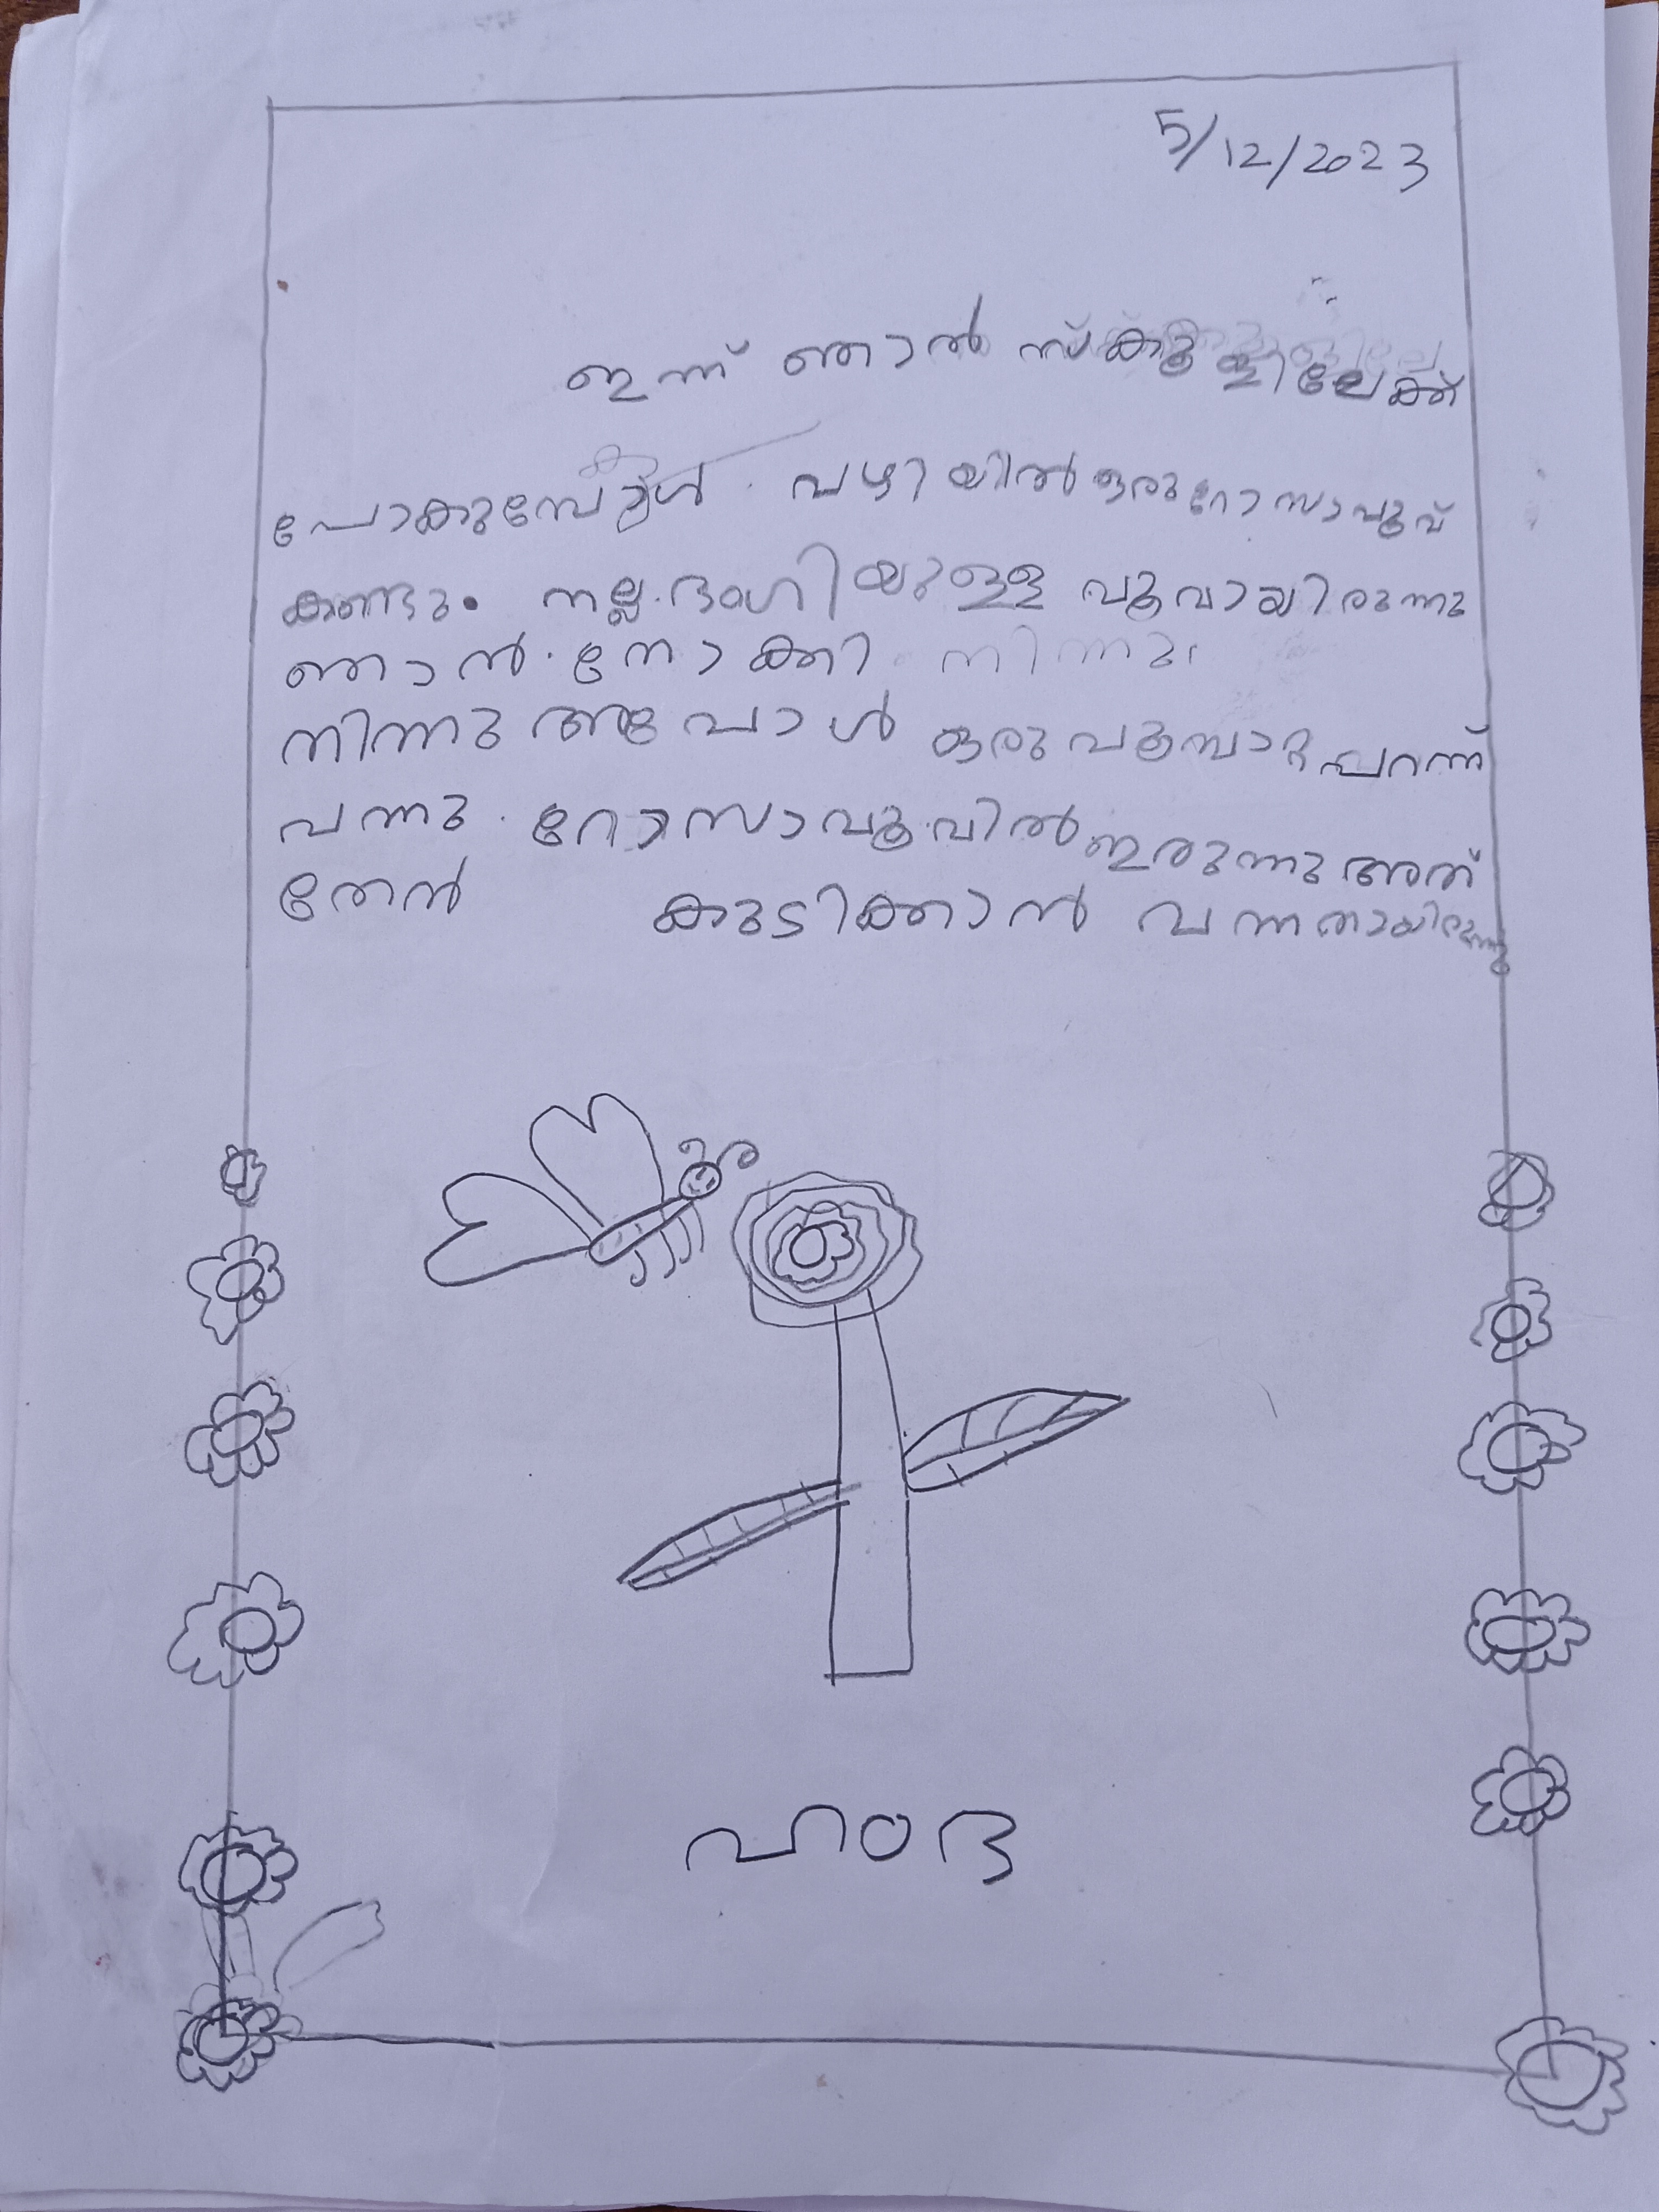 5/12/2023
ഇന്ന് ഞാൻ സ്കൂളിലേക്ക്
പോകുമ്പോൾ വഴിയിൽ ഒരു റോസാപൂവ്
കണ്ടു. നല്ല ഭംഗിയുള്ള പൂവായിരുന്നു
ഞാൻ നോക്കി നിന്നു
നിന്നു അപ്പോൾ ഒരു പൂമ്പാറ്റ പറന്ന്
വന്നു റോസാപൂവിൽ ഇരുന്നു അത്
തേൻ കുടിക്കാൻ വന്നതായിരുന്നു
ഹംദ